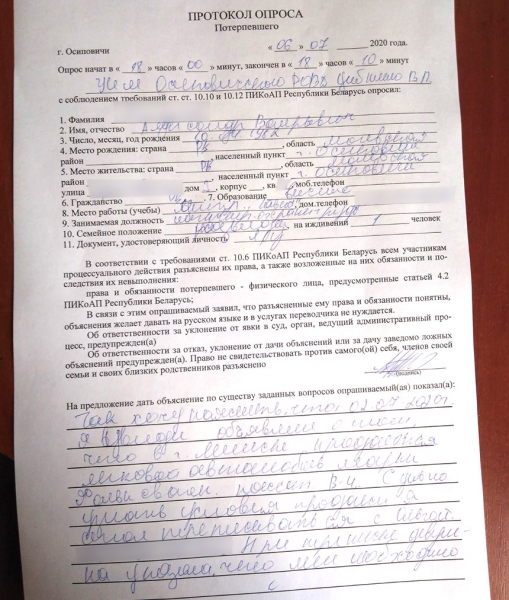 ПРОТОКОЛ ОПРОСА
Потерпевшего
г. Осиповичи « 06 » 07 2020 года.
Опрос начат в « 18 » часов « 00 » минут, закончен в « 18 » часов « 10 » минут
Осиповичского РОВД
с соблюдением требований ст. ст. 10.10 и 10.12 ПИКоАП Республики Беларусь опросил:
1. Фамилия
2. Имя, отчество Александр Валерьевич
3. Число, месяц, год рождения
4. Место рождения: страна РБ, область Могилевская
район , населенный пункт г. Осиповичи
5. Место жительства: страна РБ, область Могилевская
район , населенный пункт г. Осиповичи
улица дом , корпус , кв моб.телефон
6. Гражданство 7. Образование высшее
8. Место работы (учебы) дом.телефон
9. Занимаемая должность
10. Семейное положение , на иждивении 1 человек
11. Документ, удостоверяющий личность
В соответствии с требованиями ст. 10.6 ПИКоАП Республики Беларусь всем участникам
процессуального действия разъяснены их права, а также возложенные на них обязанности и по-
следствия их невыполнения:
права и обязанности потерпевшего - физического лица, предусмотренные статьей 4.2
ПИКоАП Республики Беларусь;
В связи с этим опрашиваемый заявил, что разъясненные ему права и обязанности понятны,
объяснения желает давать на русском языке и в услугах переводчика не нуждается.
Об ответственности за уклонение от явки в суд, орган, ведущий административный про-
цесс, предупрежден(а)
Об ответственности за отказ, уклонение от дачи объяснений или за дачу заведомо ложных
объяснений предупрежден(а). Право не свидетельствовать против самого(ой) себя, членов своей
семьи и своих близких родственников разъяснено
(подпись)
На предложение дать объяснение по существу заданных вопросов опрашиваемый(ая) показал(а):
Так хочу пояснить, что 02.07.2020г.
я объявление о том,
что в г. Минске продается
легковой автомобиль марки
Фольксваген пассат В-4. С целью
условия продажи я
стал переписываться с
При
на указала, что мне необходимо